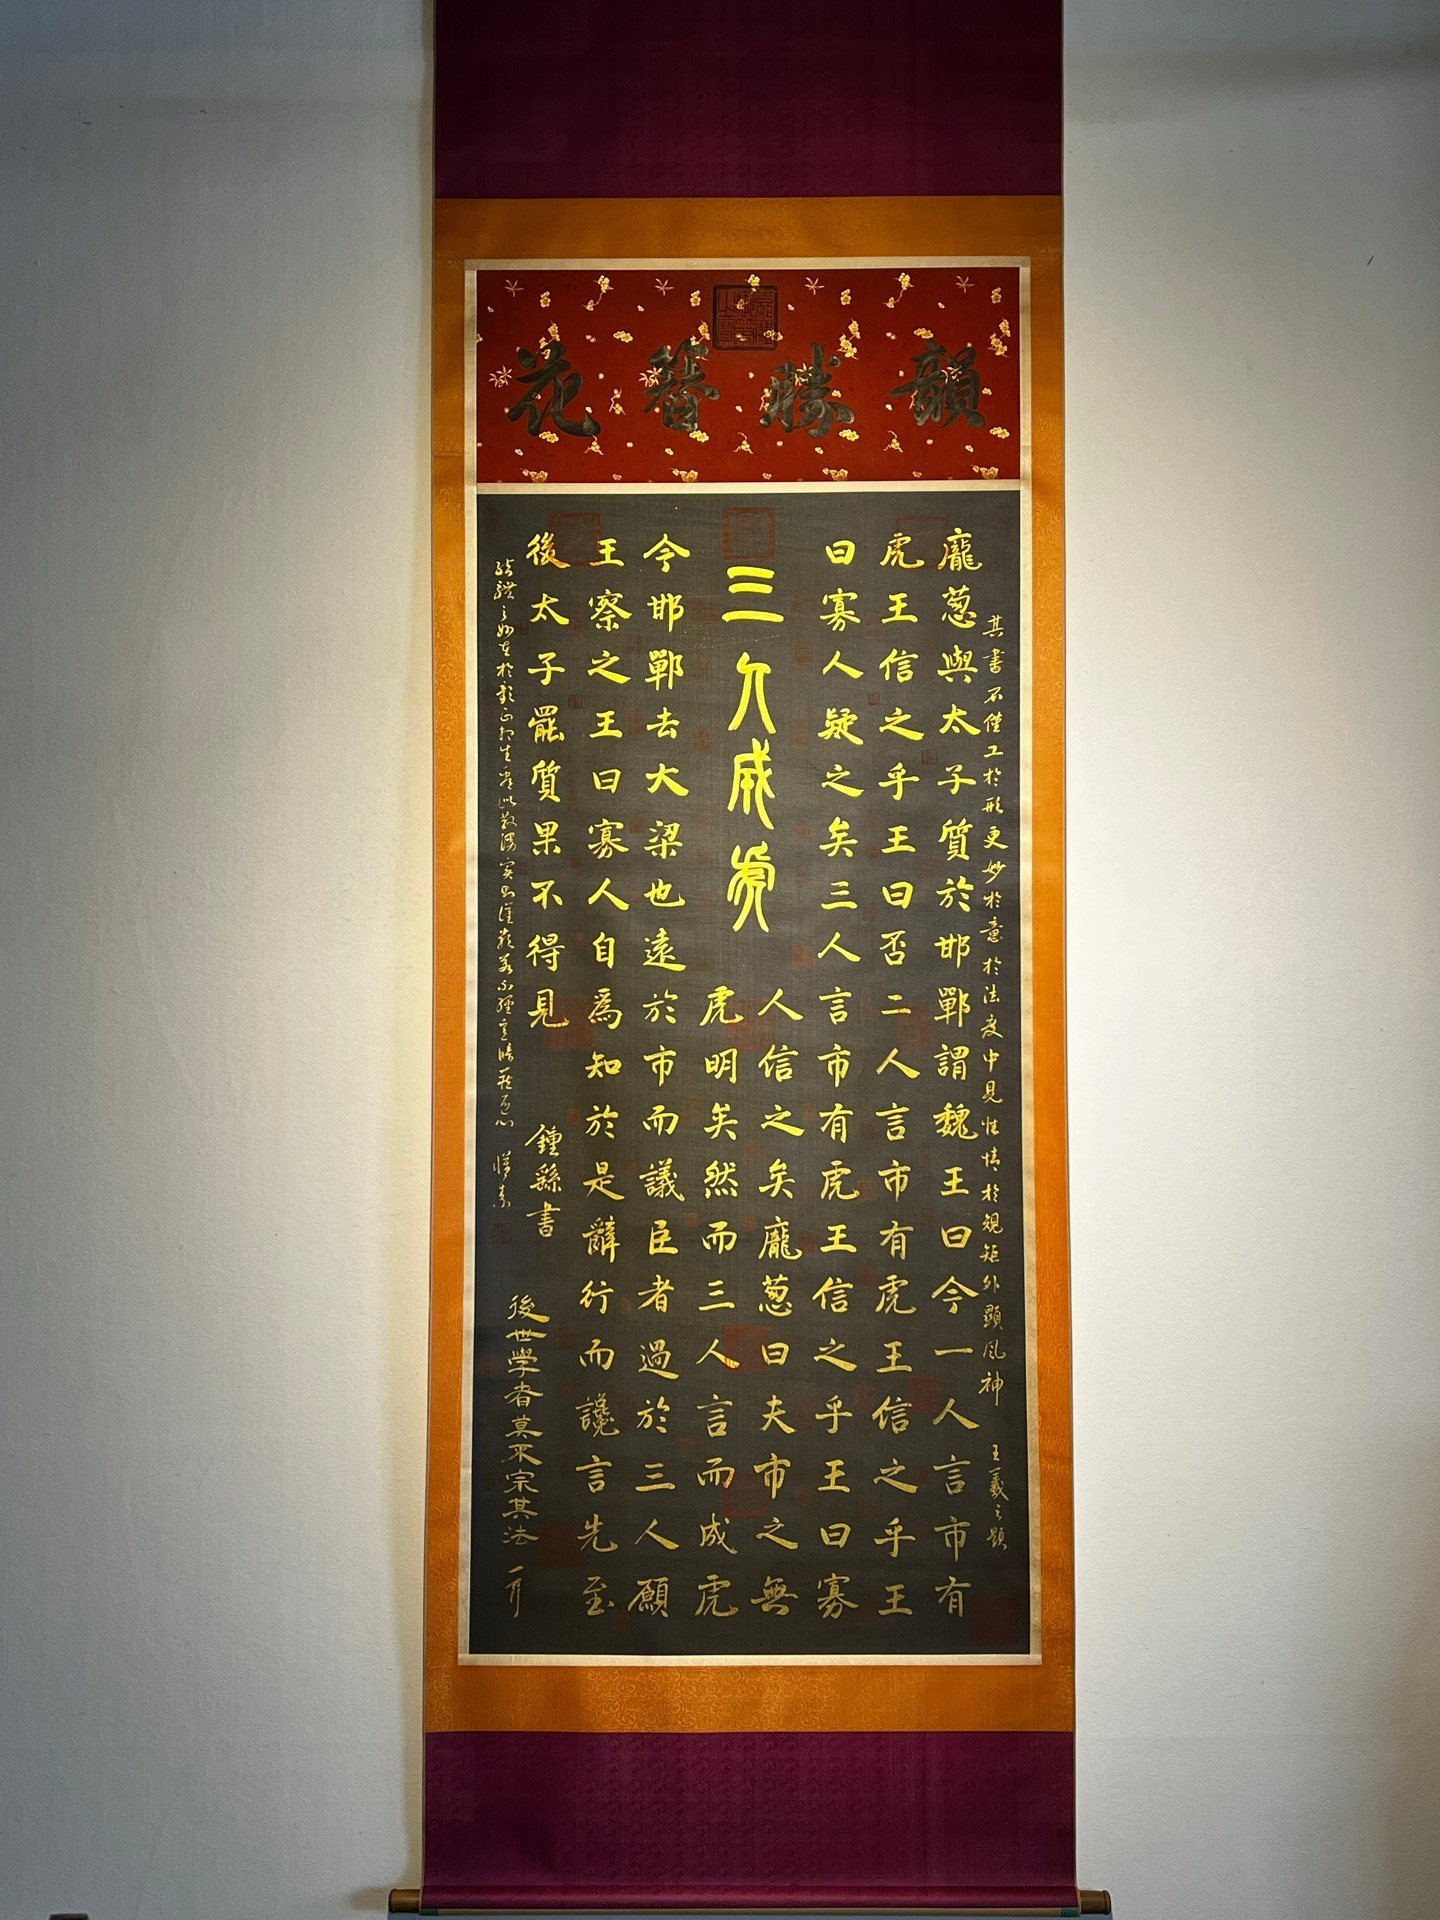 韻勝簪花
其書不僅工於形更妙於意於法度中見性情於規矩外顯風神 王羲之題
龐蔥與太子質於邯鄲謂魏王曰今一人言市有
虎王信之乎王曰否二人言市有虎王信之乎王
曰寡人疑之矣三人言市有虎王信之乎王曰寡
三人成虎
人信之矣龐蔥曰夫市之無
虎明矣然而三人言而成虎
今邯鄲去大梁也遠於市而議臣者過於三人願
王察之王曰寡人自為知於是辭行而讒言先至
後太子罷質果不得見 鍾繇書
後世學者莫不宗其法